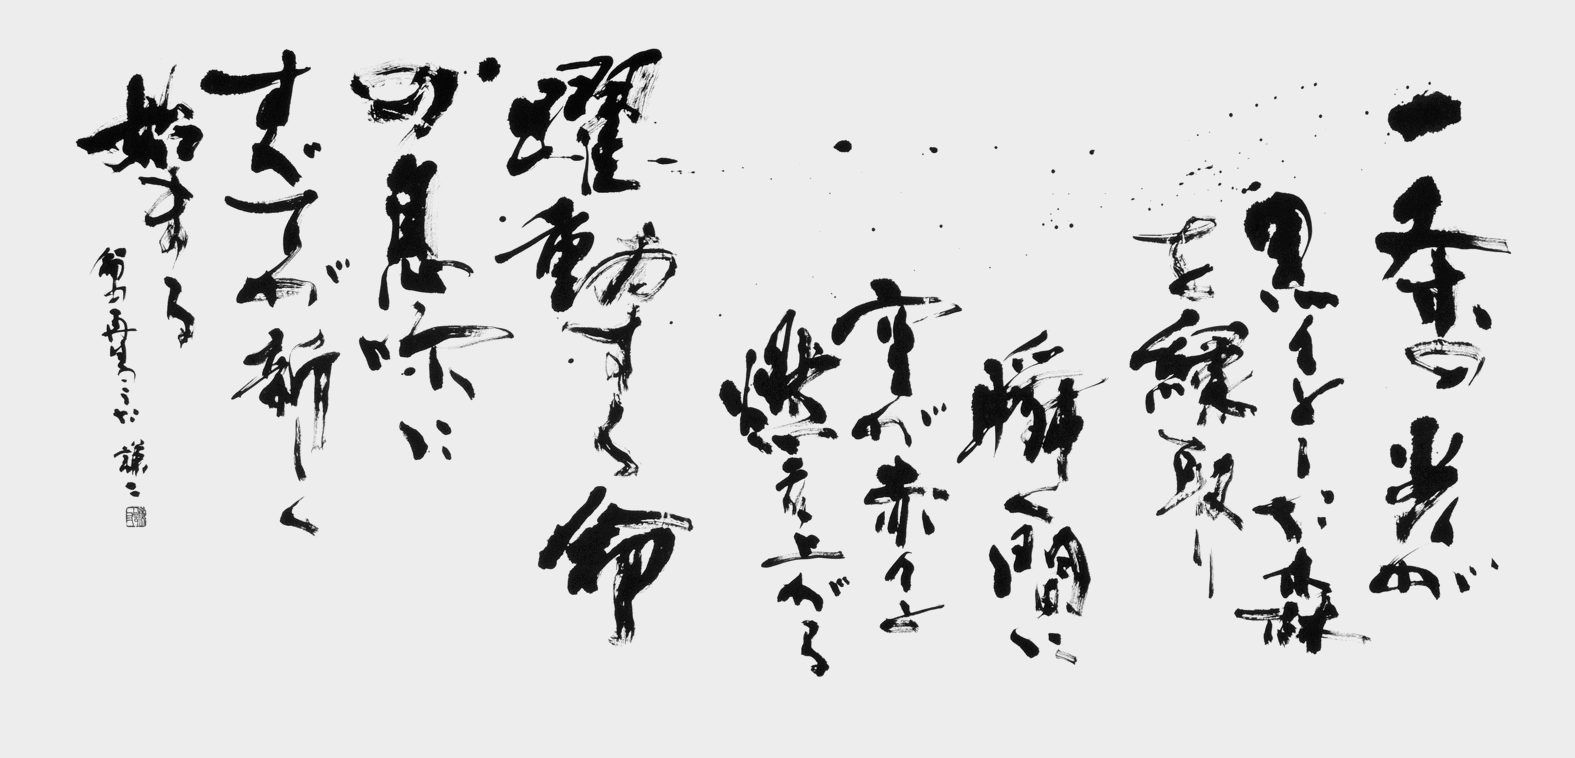 一条の光が
黒々とした森
を縁取り
瞬く間に
空が赤々と
燃え上がる
躍動する命
の息吹に
すべてが新しく
始まる
謙二